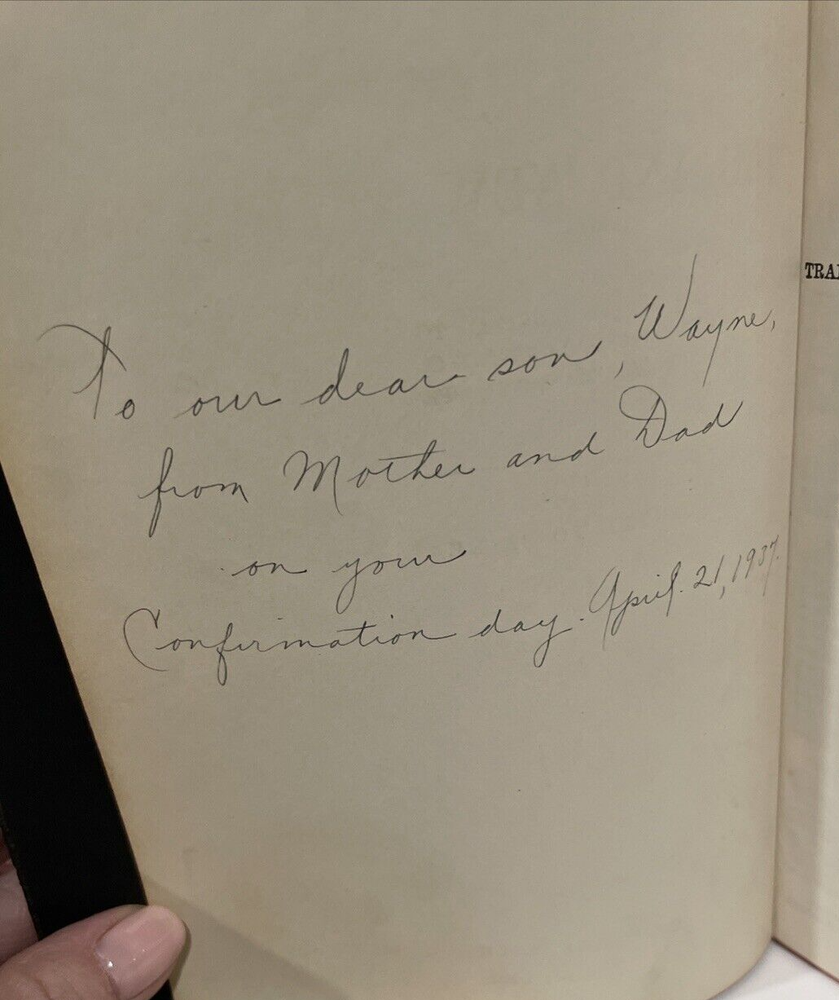 To our dear son, Wayne,
from Mother and Dad
on your
Confirmation day. April. 21, 1937.
TRA